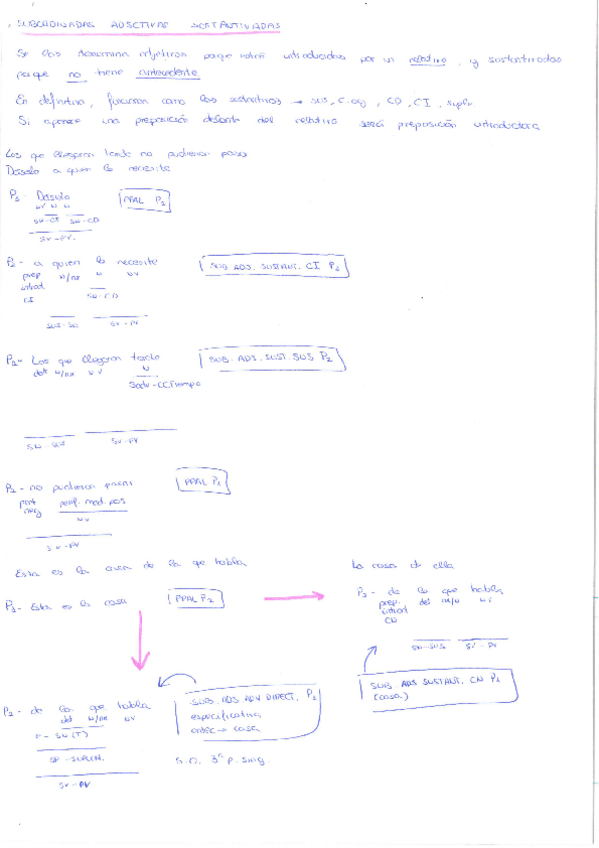 SUBORDINADAS ADJETIVAS SUSTANTIVADAS
Se las denomina adjetivas porque están introducidas por un relativo, y sustantivadas
porque no tiene antecedente
En definitiva, funcionan como los sustantivos → SUS, C. ag, CD, CI, supl.
Si aparece una preposición delante del relativo será preposición introductora
Los que llegaron tarde no pudieron pasar
Dáselo a quien lo necesite
P1- Dáselo
PPAL P2
NV N N
SN-CI SN-CD
SV-PV
P2- a quien lo necesite
SUB ADJ. SUSTANT. CI P1
prep N/nx N NV
introd.
CI
SN-CD
SUS-SN SV-PV
P2- Los que llegaron tarde
SUB. ADJ. SUST. SUS P2
det N/nx NV N
Sadv-CCTiempo
SN SUS SV-PV
P2- no pudieron pasar
PPAL P1
neg perif. mod. pos
NV
SV-PV
Esta es la casa de la que habla
La casa de ella
P1- Esta es la casa
PPAL P2
P2- de la que habla
prep. det N/nx NV
introd
CN
SN-SUS SV-PV
SUB ADJ SUSTANT. CN P1
(casa)
P2- de la que habla
det N/nx NV
E- SN (T)
SP-SUPLEM.
SV-PV
SUB. ADJ. ADJ DIRECT. P1
especificativa
antec → casa
S.O. 3ª p. sing.